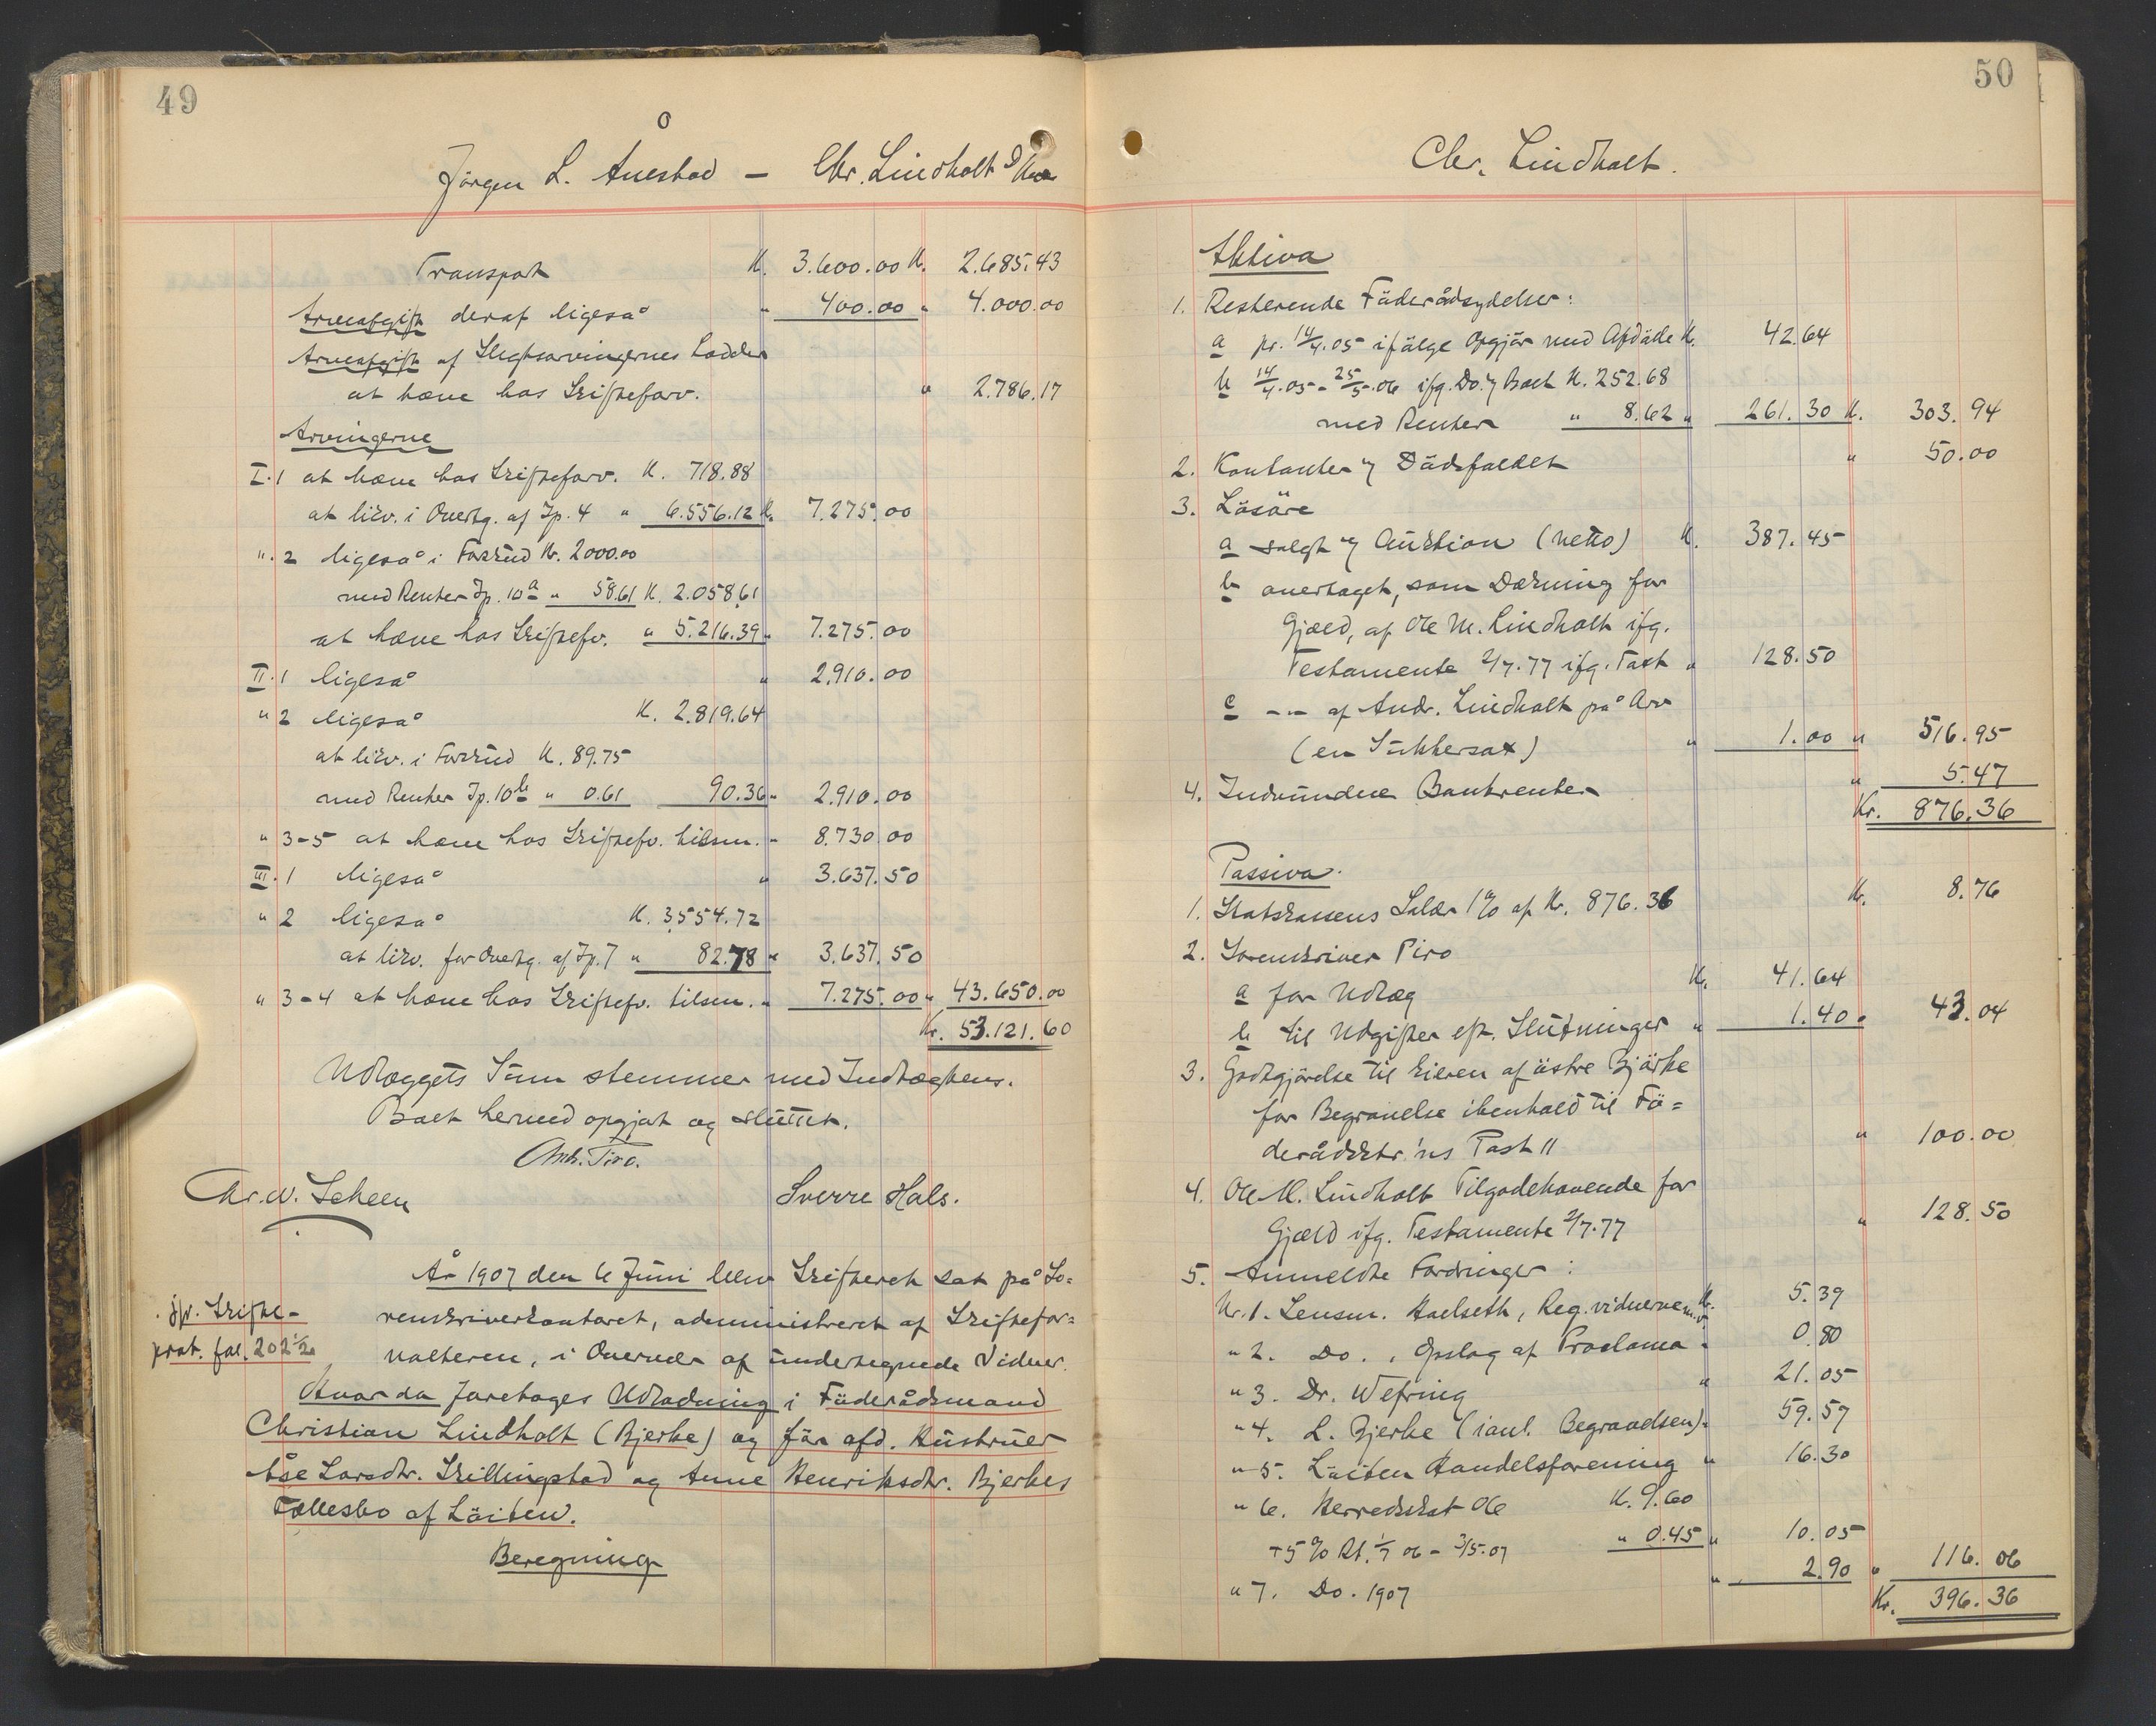 49
Jörgen L. Ånestad – Chr. Lindholt
Transport K. 3.600.00 K. 2.685.43
Arveafgift deraf ligeså " 400.00 " 4.000.00
Arveafgift af Slegtsarvingernes Lodder
at hæve hos Skifteforv. " 2.786.17
Arvingerne
I.1 at hæve hos Skifteforv. K. 718.88
at likv. i Overtg. af Jp. 4 " 6.556.12 K. 7.275.00
". 2 ligeså i Forskud Kr. 2000.00
med Renter Jp. 10a " 58.61 K. 2.058.61
at hæve hos Skiftefv. " 5.216.39 " 7.275.00
II.1 ligeså " 2.910.00
" 2 ligeså K. 2.819.64
at likv. i Forskud K. 89.75
med Renter Jp. 10b " 0.61 90.36 " 2.910.00
" 3-5 at hæve hos Skiftefv. tilsm. " 8.730.00
III.1 ligeså " 3.637.50
" 2 ligeså K. 3.554.72
at likv. for Overtg. af Jp. 7 " 82.78 " 3.637.50
" 3-4 at hæve hos Skiftefv. tilsm. " 7.275.00 " 43.650.00
Kr. 53.121.60
Udlæggets Sum stemmer med Indtægtens.
Boet hermed opgjort og sluttet.
Anth. Piro.
Chr. W. Scheen Sverre Hals.
År 1907 den 6 Juni blev Skifteret sat på So=
renskriverkontoret, administreret af Skiftefor=
valteren, i Overvær af undertegnede Vidner.
jfr. Skifte-
prot. fol. 202 1/2
Hvor da foretoges Udlodning i Föderådsmand
Christian Lindholt (Bjerke) og för afd. Hustruer
Åse Larsdtr. Skillingstad og Anne Henriksdtr. Bjerkes
Fællesbo af Löiten.
Beregning
50
Chr. Lindholt.
Aktiva
1. Resterende Föderådsydelser:
a pr. 14/4.05 ifölge Opgjör med Afdöde K. 42.64
b 14/4.05 - 25/5.06 ifg. Do. v/ Boet K. 252.68
med Renter " 8.62 " 261.30 K. 303.94
2. Kontanter v/ Dödsfaldet " 50.00
3. Lösöre
a solgt v/ Auktion (netto) K. 387.45
b overtaget, som Dækning for
Gjæld, af Ole M. Lindholt ifg.
Testamente 2/7.77 ifg. Post " 128.50
c -"- af Andr. Lindholt på Arv
(en Sukkersax) " 1.00 " 516.95
4. Indvundne Bankrenter " 5.47
Kr. 876.36
Passiva.
1. Statskassens Salær 1% af Kr. 876.36 Kr. 8.76
2. Sorenskriver Piro
a for Udlæg K. 41.64
b til Udgifter eft. Slutninger " 1.40 " 43.04
3. Godtgjörelse til Eieren af östre Bjärke
for Begravelse ibenhold til Fö=
derådsktr.'ns Post 11 " 100.00
4. Ole M. Lindholt Tilgodehavende for
Gjæld ifg. Testamente 2/7.77 " 128.50
5. Anmeldte Fordringer:
Nr. 1. Lensm. Haelseth, Reg. vidnerne m.v. K. 5.39
" 2. Do., Opslag af Proclama " 0.80
" 3. Dr. Wefring " 21.05
" 4. L. Bjerke (ianl. Begravelsen) " 59.57
" 5. Löiten Handelsforening " 16.30
" 6. Herredskat 06 K. 9.60
+ 5% Rt. 1/7 06 - 3/5.07 " 0.45 " 10.05
" 7. Do. 1907 " 2.90 " 116.06
Kr. 396.36